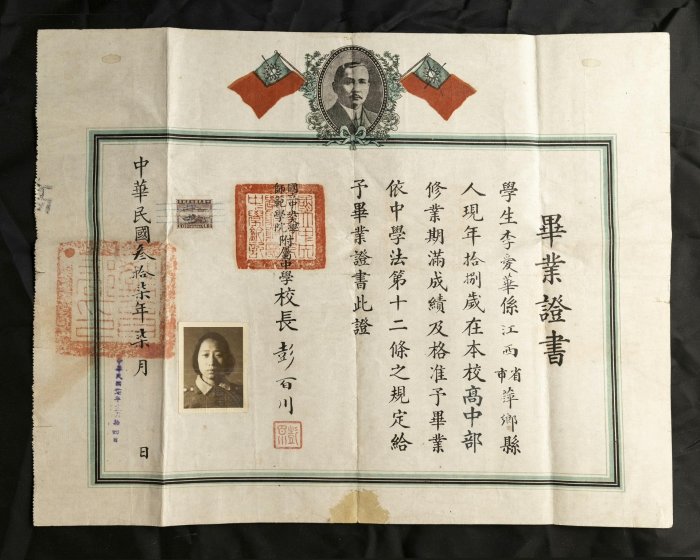 畢業證書
學生李愛華係江西省市萍鄉縣
人現年拾捌歲在本校高中部
修業期滿成績及格准予畢業
依中學法第十二條之規定給
予畢業證書此證
國立中央大學師範學院附屬中學校長彭百川
中華民國叁拾柒年柒月 日